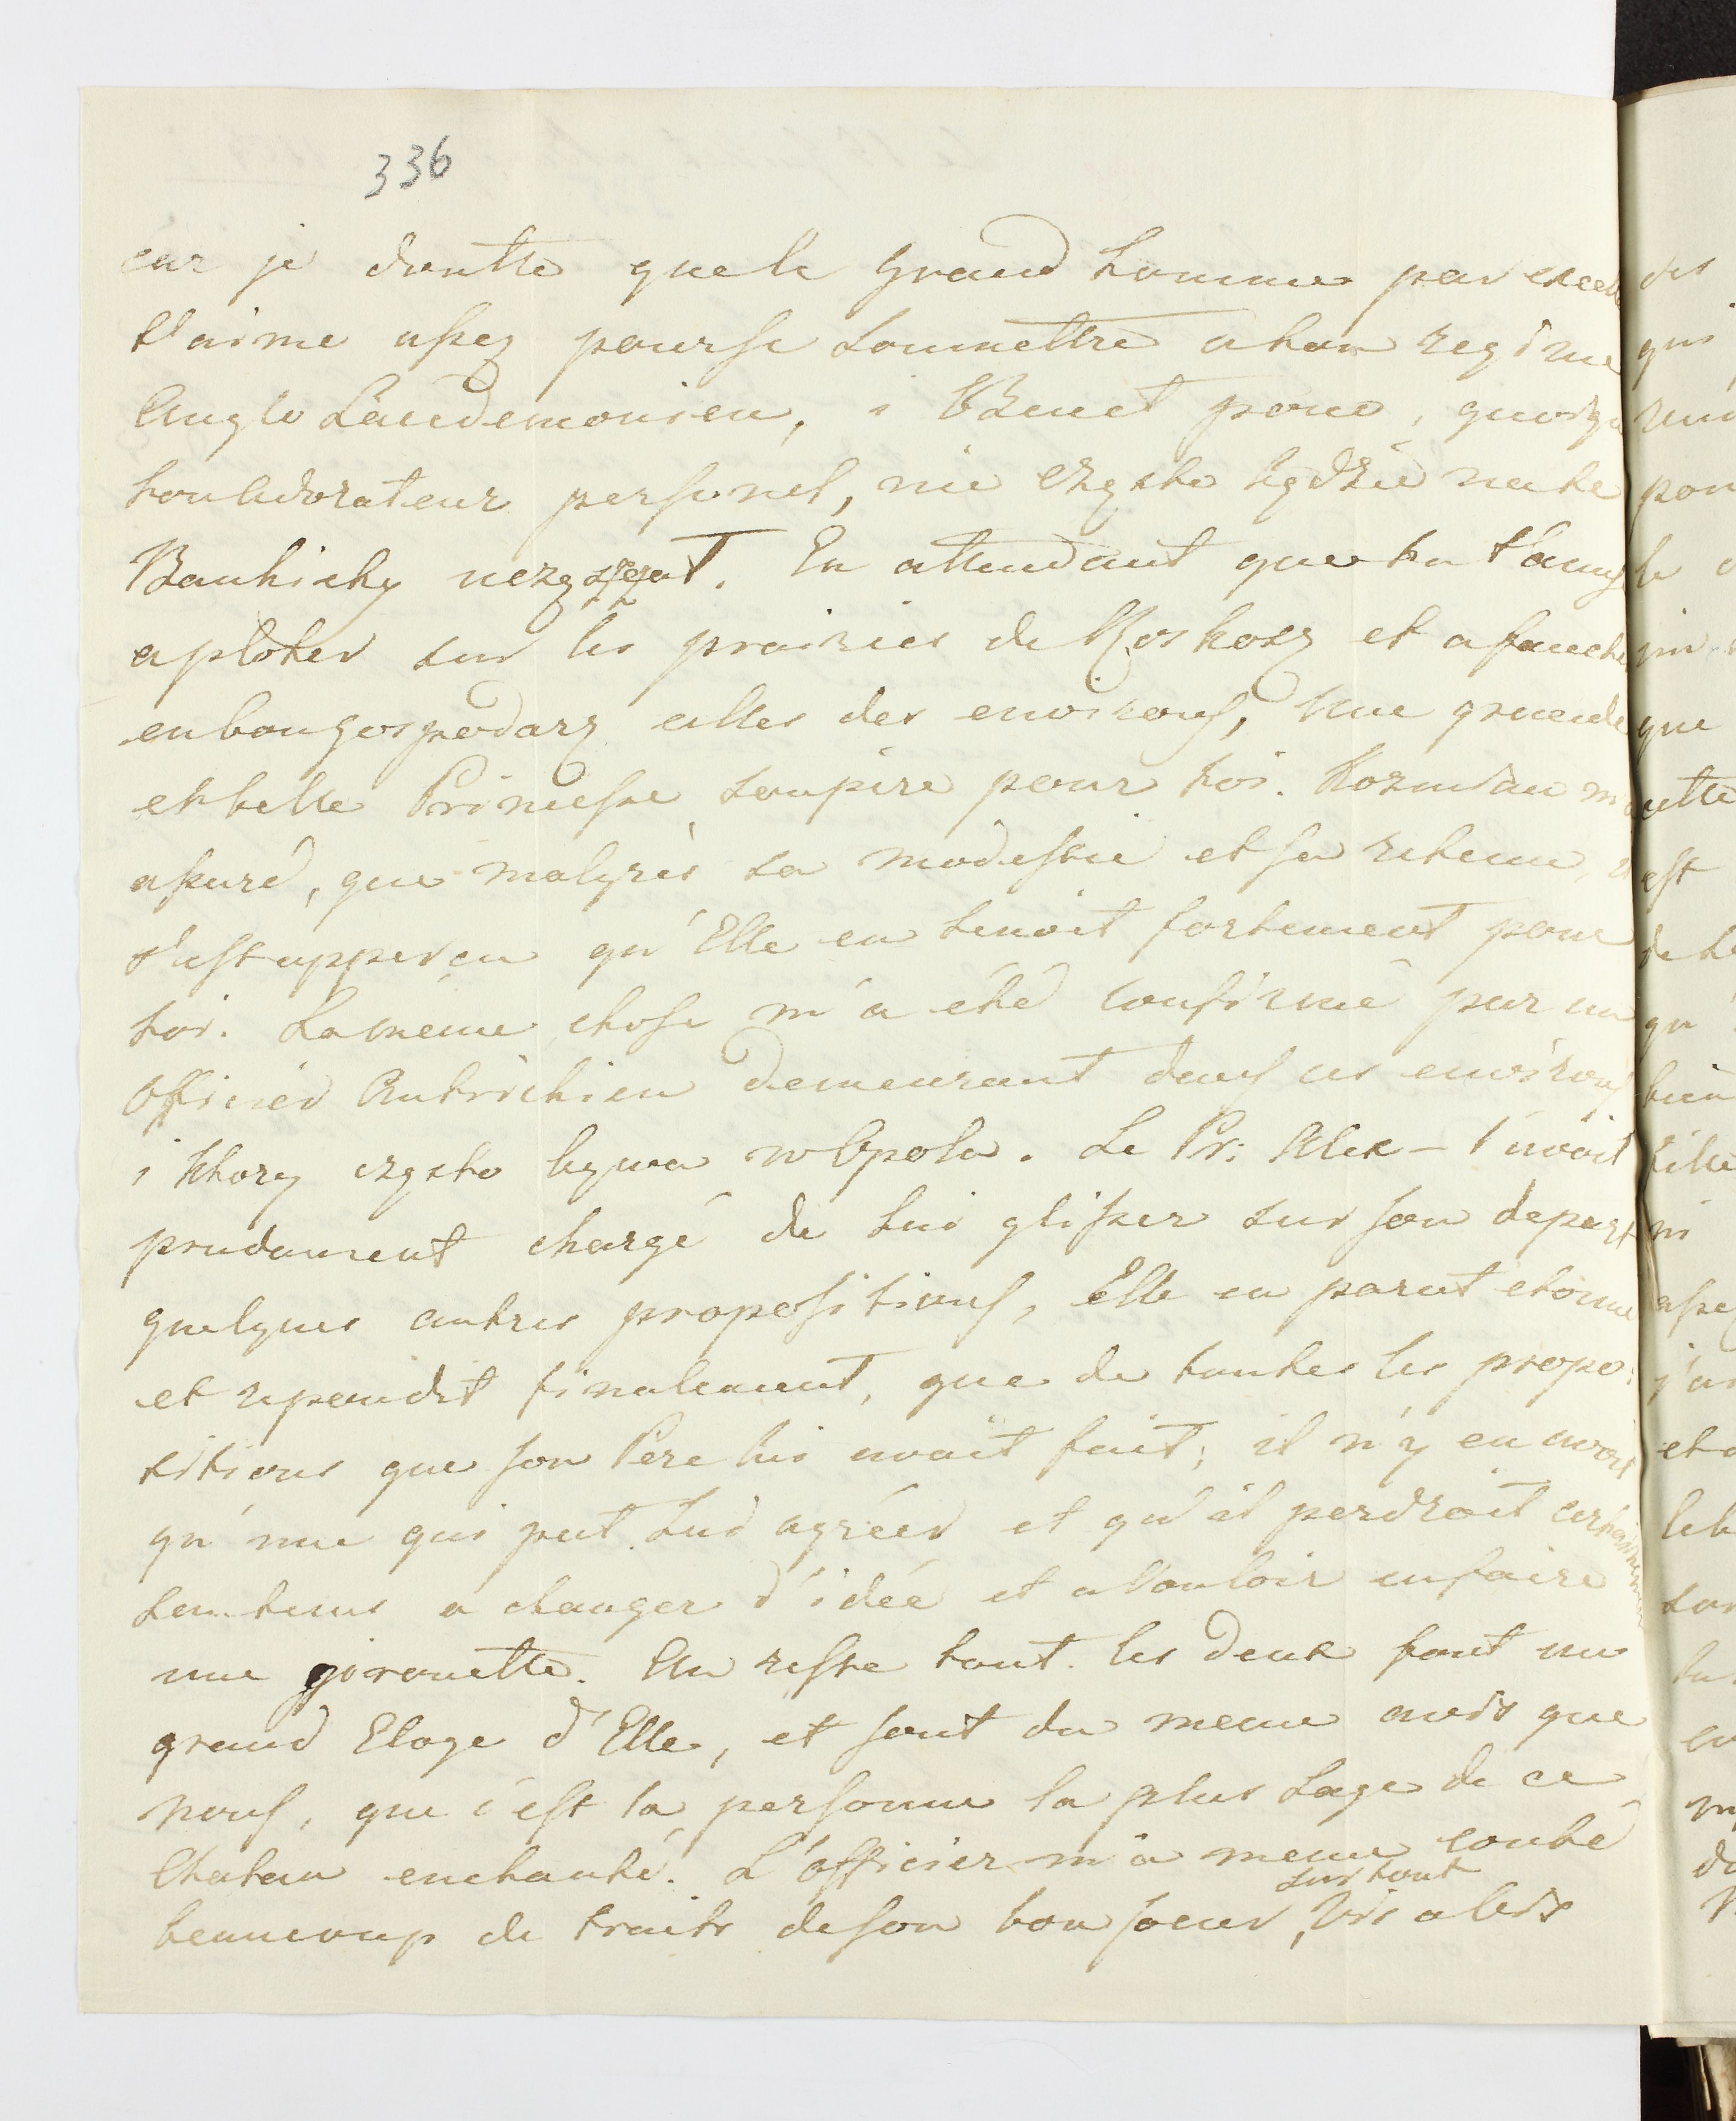 336
car je doutte que le Grand homme par excell
t'aime assez pour se soumettre a ton regime
Anglo Lacedemonien, i Benet pono, quoiqu
ton adorateur personel, nie często będzie na te
Bankiety uczęszczat. En attendant que tu t'amus
a ploter sur les prairies de Roskosz et a faucher
en bon gospodarz celles des environs, Une grande
et belle Princesse soupire pour toi. Kozmian m'a
assuré, que malgrès sa modestie et sa retenue, il
s'est apperçu qu'Elle en tenoit fortement pour
toi. La meme chose m'a été confirmé par un
officier Autrichien demeurant dans ces environs
i ktory często bywa w Opolu. Le Pr: Alex- l'avoit
prudament chargé de lui glisser sur son depart
quelques autres propositions, Elle en parut etonné
et repondit finalement, que de toutes les propo:
sitions que son Pere lui avait fait; il n'y en avoit
qu'une qui put lui agréer et qu'il perdroit certainement
son tems a changer d'idée et a vouloir en faire
une girouette. Au reste tout les deux font un
grand Eloge d'Elle, et sont du meme avis que
nous, que c'est la personne la plus sage de ce
Chateau enchanté. L'officier m'a meme conté
beaucoup de traits de son bon coeur, surtout vis a vis
des
qui
pour
que
cette
est
qu
bien
ni